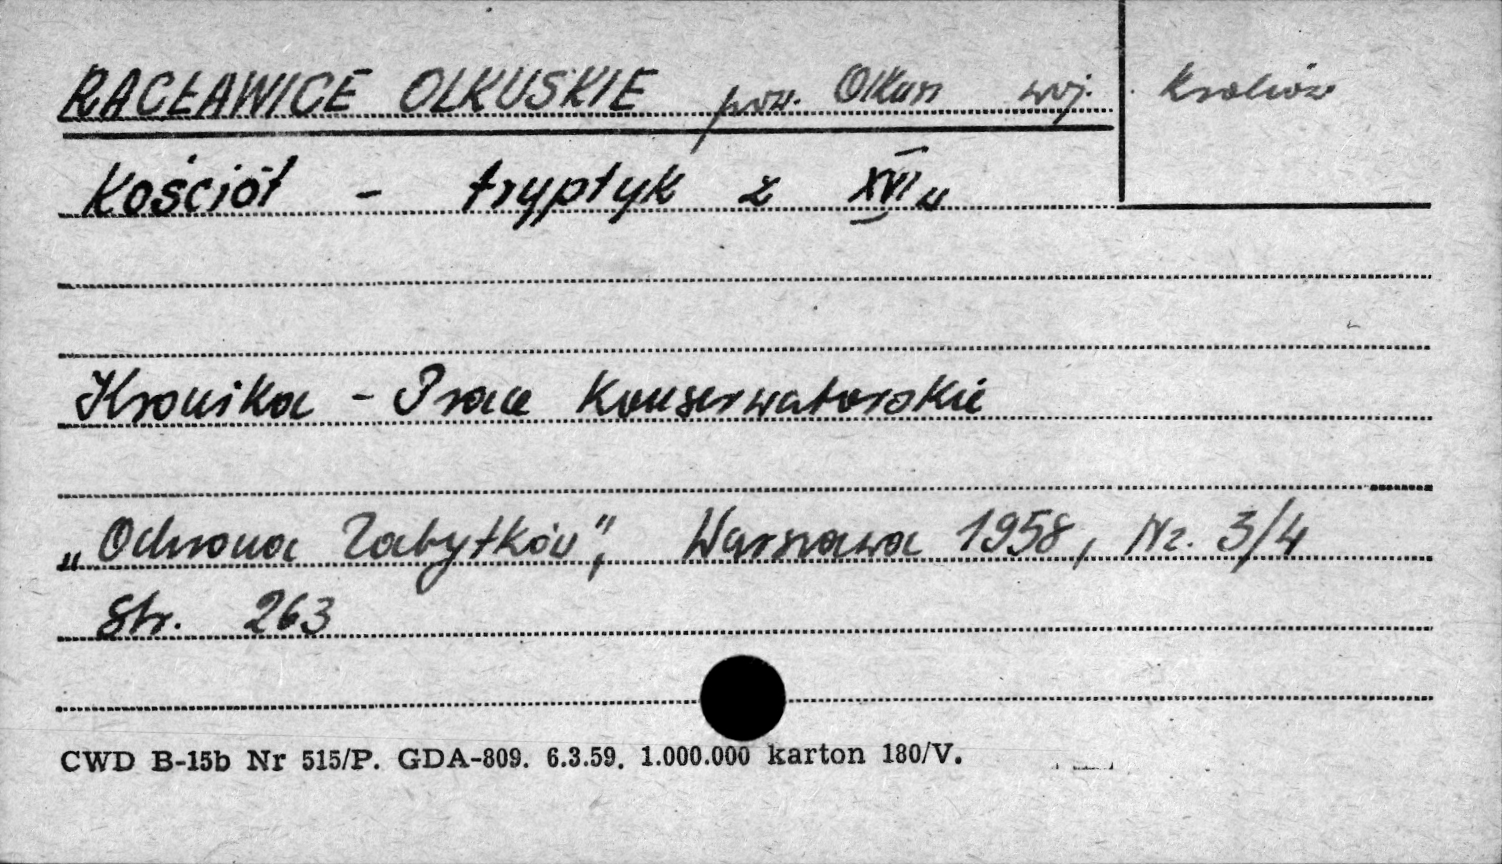 RACŁAWICE OLKUSKIE pow. Olkusz woj. Kraków
Kościół - tryptyk z XVI w
Kronika - Prace Konserwatorskie
„Ochrona Zabytków", Warszawa 1958, Nr. 3/4
Str. 263
CWD B-15b Nr 515/P. GDA-809. 6.3.59. 1.000.000 karton 180/V.